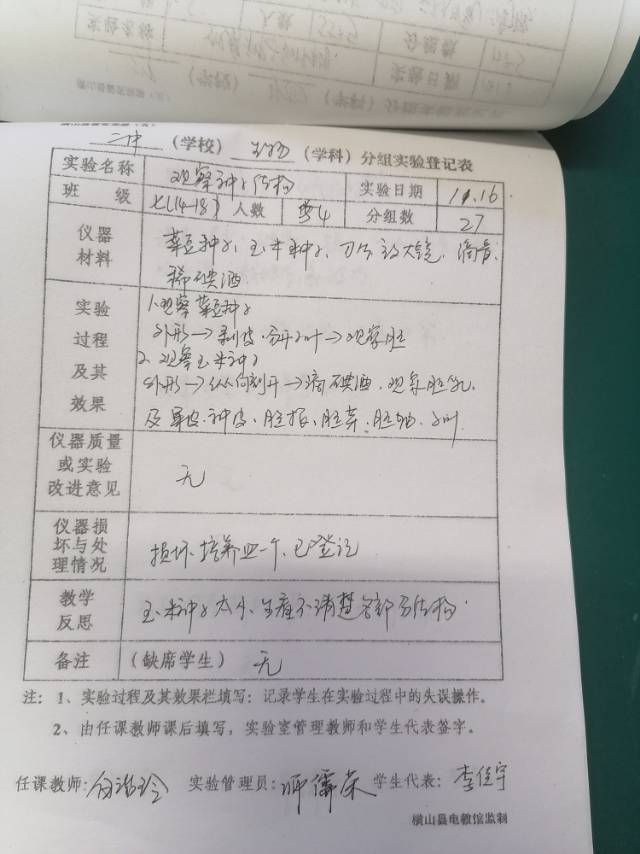 二中（学校）生物（学科）分组实验登记表
实验名称 观察种子结构 实验日期 11.16
班 级 七(14-18) 人数 分组数 27
仪器材料 菜豆种子、玉米种子、刀片、放大镜、滴管、
稀碘酒
实验过程及其效果 1.观察菜豆种子
外形→剥皮·分开子叶→观察胚
2.观察玉米种子
外形→纵向剖开→滴碘酒、观察胚乳、
及果皮、种皮、胚根、胚芽、胚轴、子叶.
仪器质量或实验改进意见 无
仪器损坏与处理情况 损坏、培养皿一个、已登记
教学反思 玉米种子太小、生看不清楚各部分结构.
备注 （缺席学生） 无
注：1、实验过程及其效果栏填写：记录学生在实验过程中的失误操作。
2、由任课教师课后填写，实验室管理教师和学生代表签字。
任课教师： 实验管理员： 学生代表：李佳宇
横山县电教馆监制